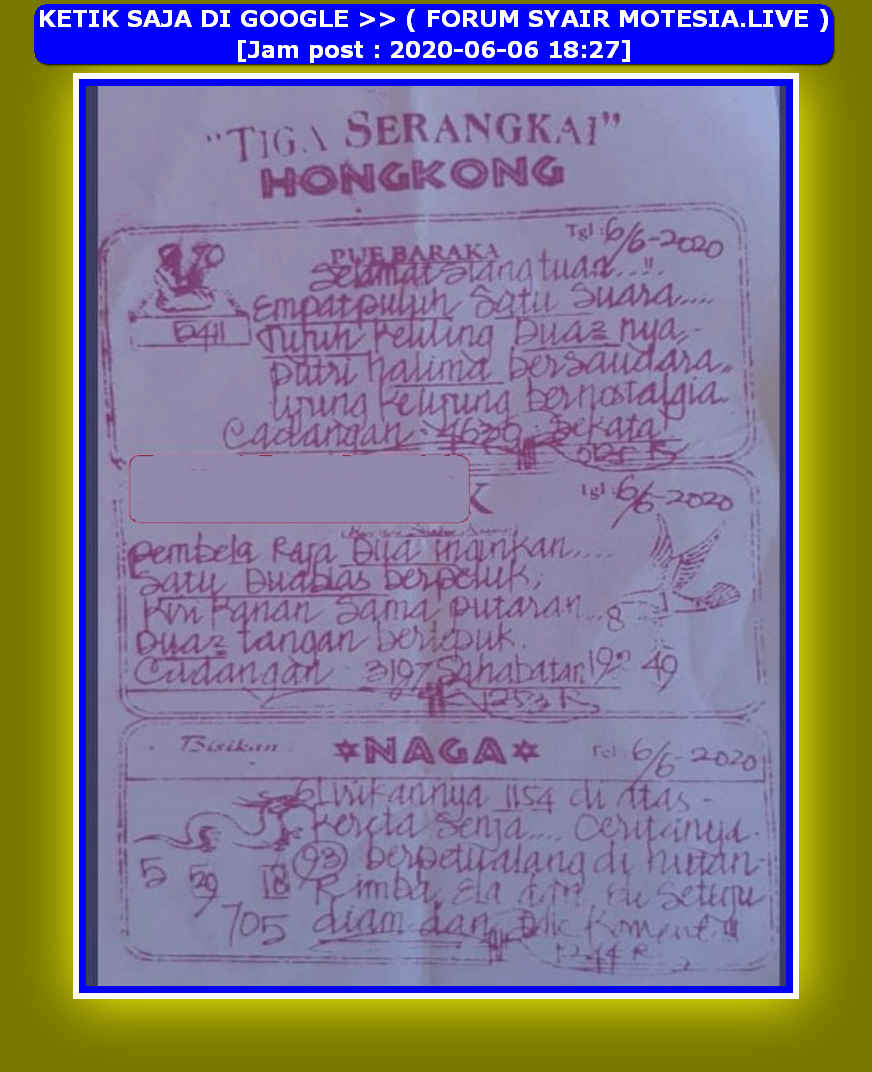 KETIK SAJA DI GOOGLE >> ( FORUM SYAIR MOTESIA.LIVE )
[Jam post : 2020-06-06 18:27]
"TIGA SERANGKAI"
HONGKONG
Tgl : 6/6-2020
PUE BARAKA
Selamat siang tuan...!!.
Empat puluh Satu Suara....
5411
Tujuh keliling Dua2 nya,-
Putri halima bersaudara..
Urung kelurung bernostalgia.
Cadangan : 4630 Sekata!
K
Tgl : 6/6-2020
Pembela Raja Dua inginkan....
Satu Duablas berpeluk,
Kiri Kanan Sama putaran...
8
Dua2 tangan bertepuk.
Cadangan 3197 Sahabatan 49
1253 R
Bisikan
NAGA
Tgl 6/6-2020
Lirikannya 1154 di atas -
Kereta Senja.... Ceritanya.
93 berpetualang di hutan-
5 18 Rimba, Setuju
705 diam dan Koment.